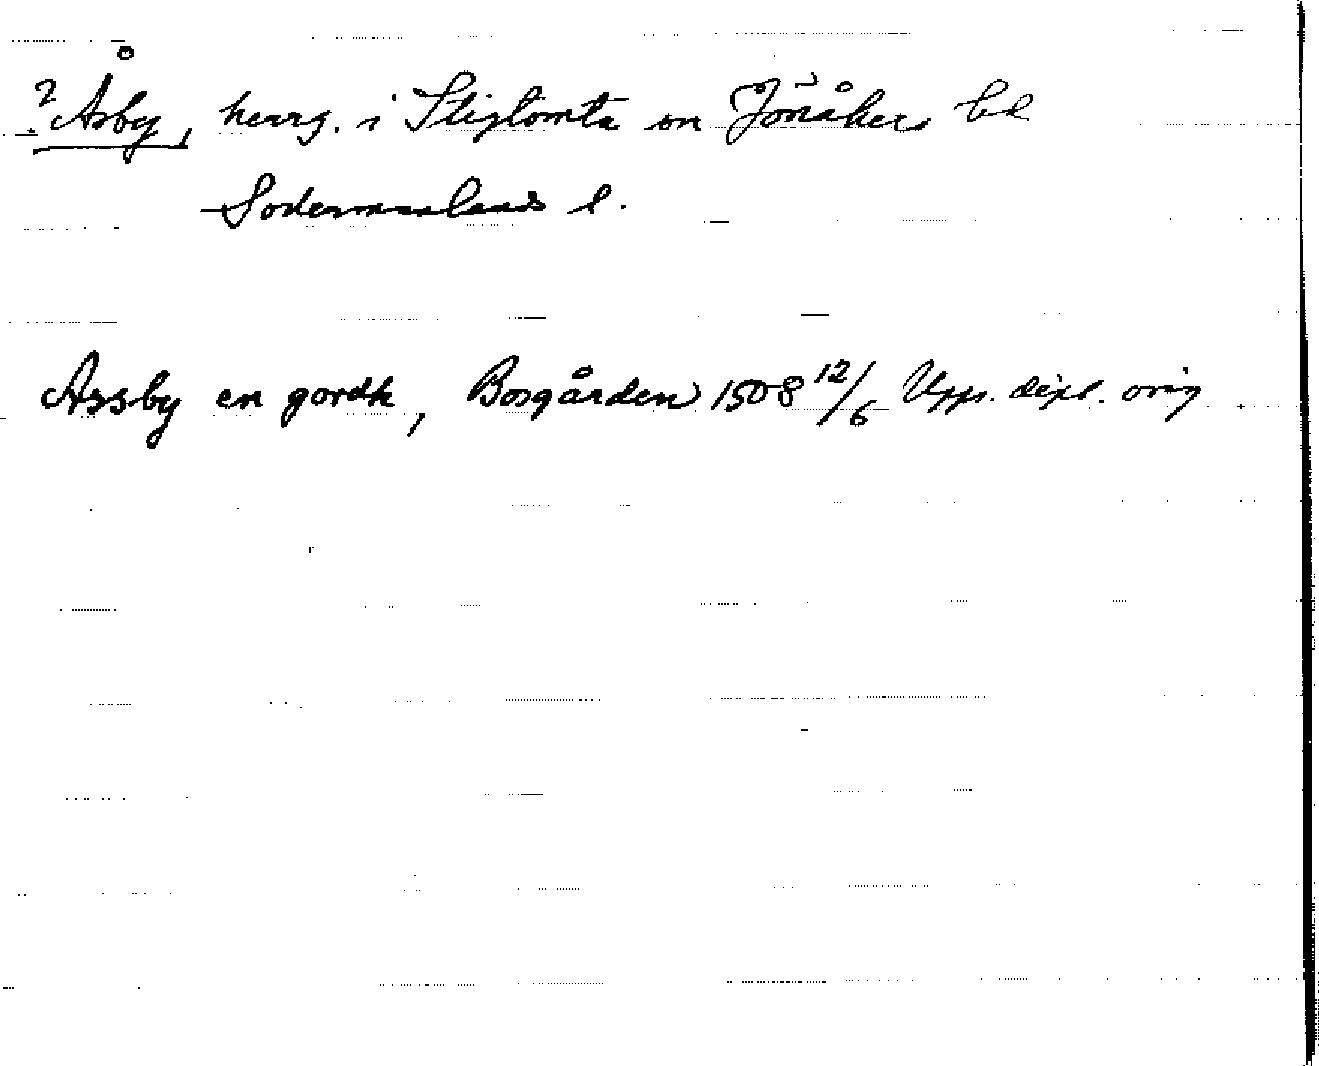 ? Åsby, herrg. i Stigtomta sn Jönåkers hd
Södermanlands l.
Assby en gordh, Bosgården 1508 12/6 Upps. dipl. orig